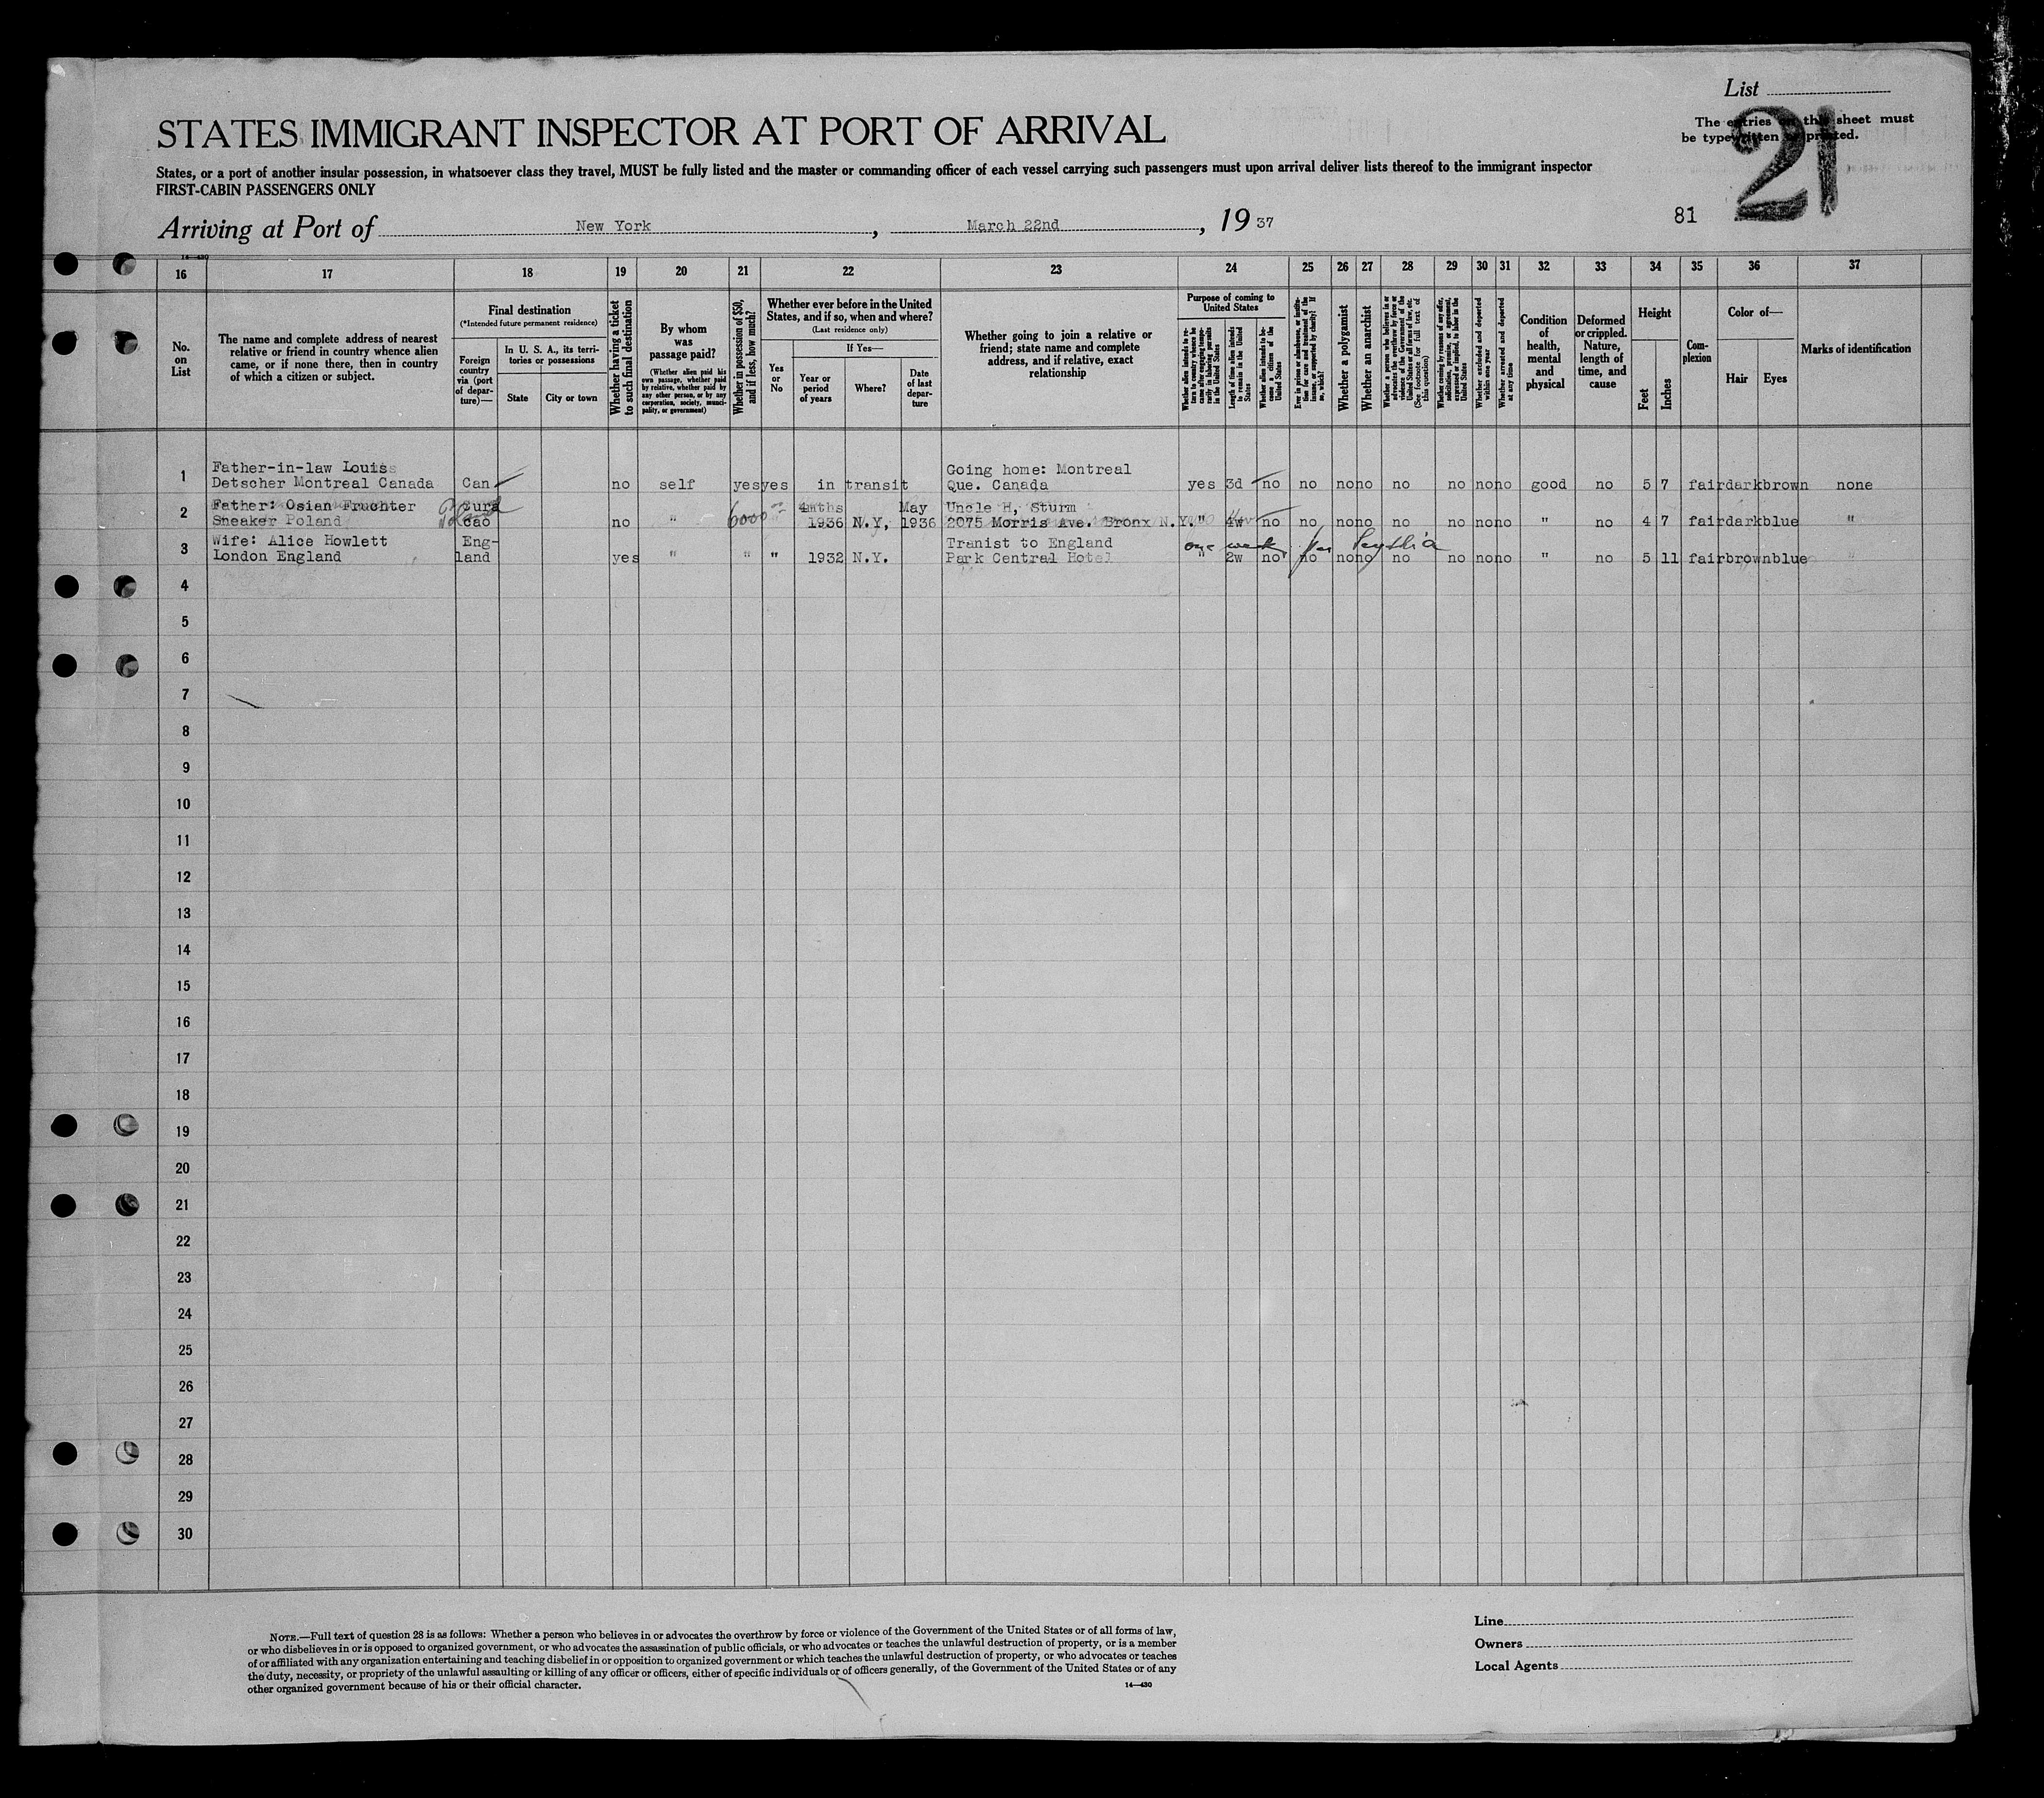 List
21
The entries on this sheet must
be typewritten or printed.
STATES IMMIGRANT INSPECTOR AT PORT OF ARRIVAL
States, or a port of another insular possession, in whatsoever class they travel, MUST be fully listed and the master or commanding officer of each vessel carrying such passengers must upon arrival deliver lists thereof to the immigrant inspector
FIRST-CABIN PASSENGERS ONLY
Arriving at Port of New York, March 22nd, 19 37
81
14—430
16 17 18 19 20 21 22 23 24 25 26 27 28 29 30 31 32 33 34 35 36 37
No.
on
List
The name and complete address of nearest
relative or friend in country whence alien
came, or if none there, then in country
of which a citizen or subject.
Final destination
(*Intended future permanent residence)
Foreign
country
via (port
of depar-
ture)—
In U. S. A., its terri-
tories or possessions
State
City or town
Whether having a ticket
to such final destination
By whom
was
passage paid?
(Whether alien paid his
own passage, whether paid
by relative, whether paid by
any other person, or by any
corporation, society, munici-
pality, or government)
Whether in possession of $50,
and if less, how much?
Whether ever before in the United
States, and if so, when and where?
(Last residence only)
Yes
or
No
If Yes—
Year or
period
of years
Where?
Date
of last
depar-
ture
Whether going to join a relative or
friend; state name and complete
address, and if relative, exact
relationship
Purpose of coming to
United States
Whether alien intends to re-
turn to country whence he
came after engaging tempo-
rarily in laboring pursuits
in the United States
Length of time alien intends
to remain in the United
States
Whether alien intends to be-
come a citizen of the
United States
Ever in prison or almshouse, or institu-
tion for care and treatment of the
insane, or supported by charity? If
so, which?
Whether a polygamist
Whether an anarchist
Whether a person who believes in or
advocates the overthrow by force or
violence of the Government of the
United States or all forms of law, etc.
(See footnote for full text of
this question)
Whether coming by reason of any offer,
solicitation, promise, or agreement,
expressed or implied, to labor in the
United States
Whether excluded and deported
within one year
Whether arrested and deported
at any time
Condition
of
health,
mental
and
physical
Deformed
or crippled.
Nature,
length of
time, and
cause
Height
Feet
Inches
Com-
plexion
Color of—
Hair
Eyes
Marks of identification
Father-in-law Louis Going home: Montreal
1 Detscher Montreal Canada Can no self yes yes in transit Que. Canada yes 3d no no no no no no no no good no 5 7 fair dark brown none
Father: Osian Fruchter Cura 4mths May Uncle H, Sturm
Poland
2 Sneaker Poland cao no " 6000 1936 N.Y, 1936 2075 Morris Ave. Bronx N.Y. " 4w no no no no no no no no " no 4 7 fair dark blue "
Wife: Alice Howlett Eng- Tranist to England one week per
3 London England land yes " " " 1932 N.Y. Park Central Hotel " 2w no no no no no no no no " no 5 11 fair brown blue "
4
5
6
7
8
9
10
11
12
13
14
15
16
17
18
19
20
21
22
23
24
25
26
27
28
29
30
NOTE.—Full text of question 28 is as follows: Whether a person who believes in or advocates the overthrow by force or violence of the Government of the United States or of all forms of law,
or who disbelieves in or is opposed to organized government, or who advocates the assassination of public officials, or who advocates or teaches the unlawful destruction of property, or is a member
of or affiliated with any organization entertaining and teaching disbelief in or opposition to organized government or which teaches the unlawful destruction of property, or who advocates or teaches
the duty, necessity, or propriety of the unlawful assaulting or killing of any officer or officers, either of specific individuals or of officers generally, of the Government of the United States or of any
other organized government because of his or their official character.
14—430
Line
Owners
Local Agents